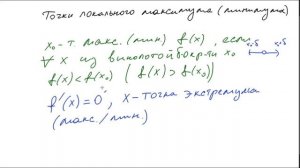 Точки локального максимума (минимума)
x₀ - т. макс. (мин) f(x), если
∀ x из окрести x₀
f(x) < f(x₀) ( f(x) > f(x₀))
f'(x) = 0, x - точка экстремума
(макс./мин.)